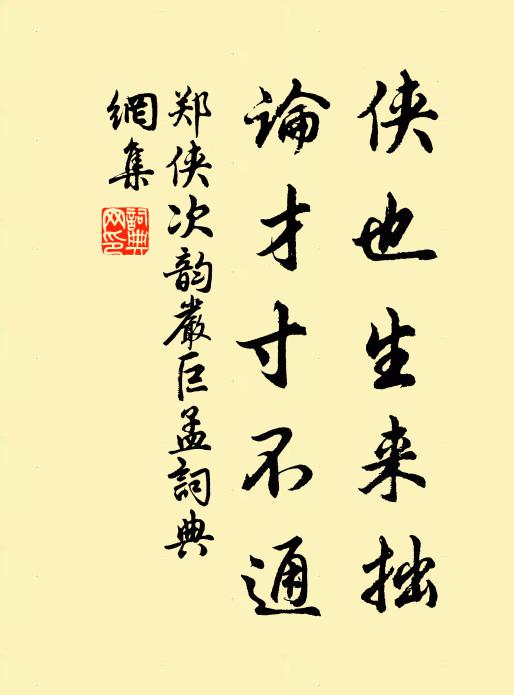 侠也生来拙
論才寸不通
郑侠次韵嚴巨孟詞典
網集
詞典
网印